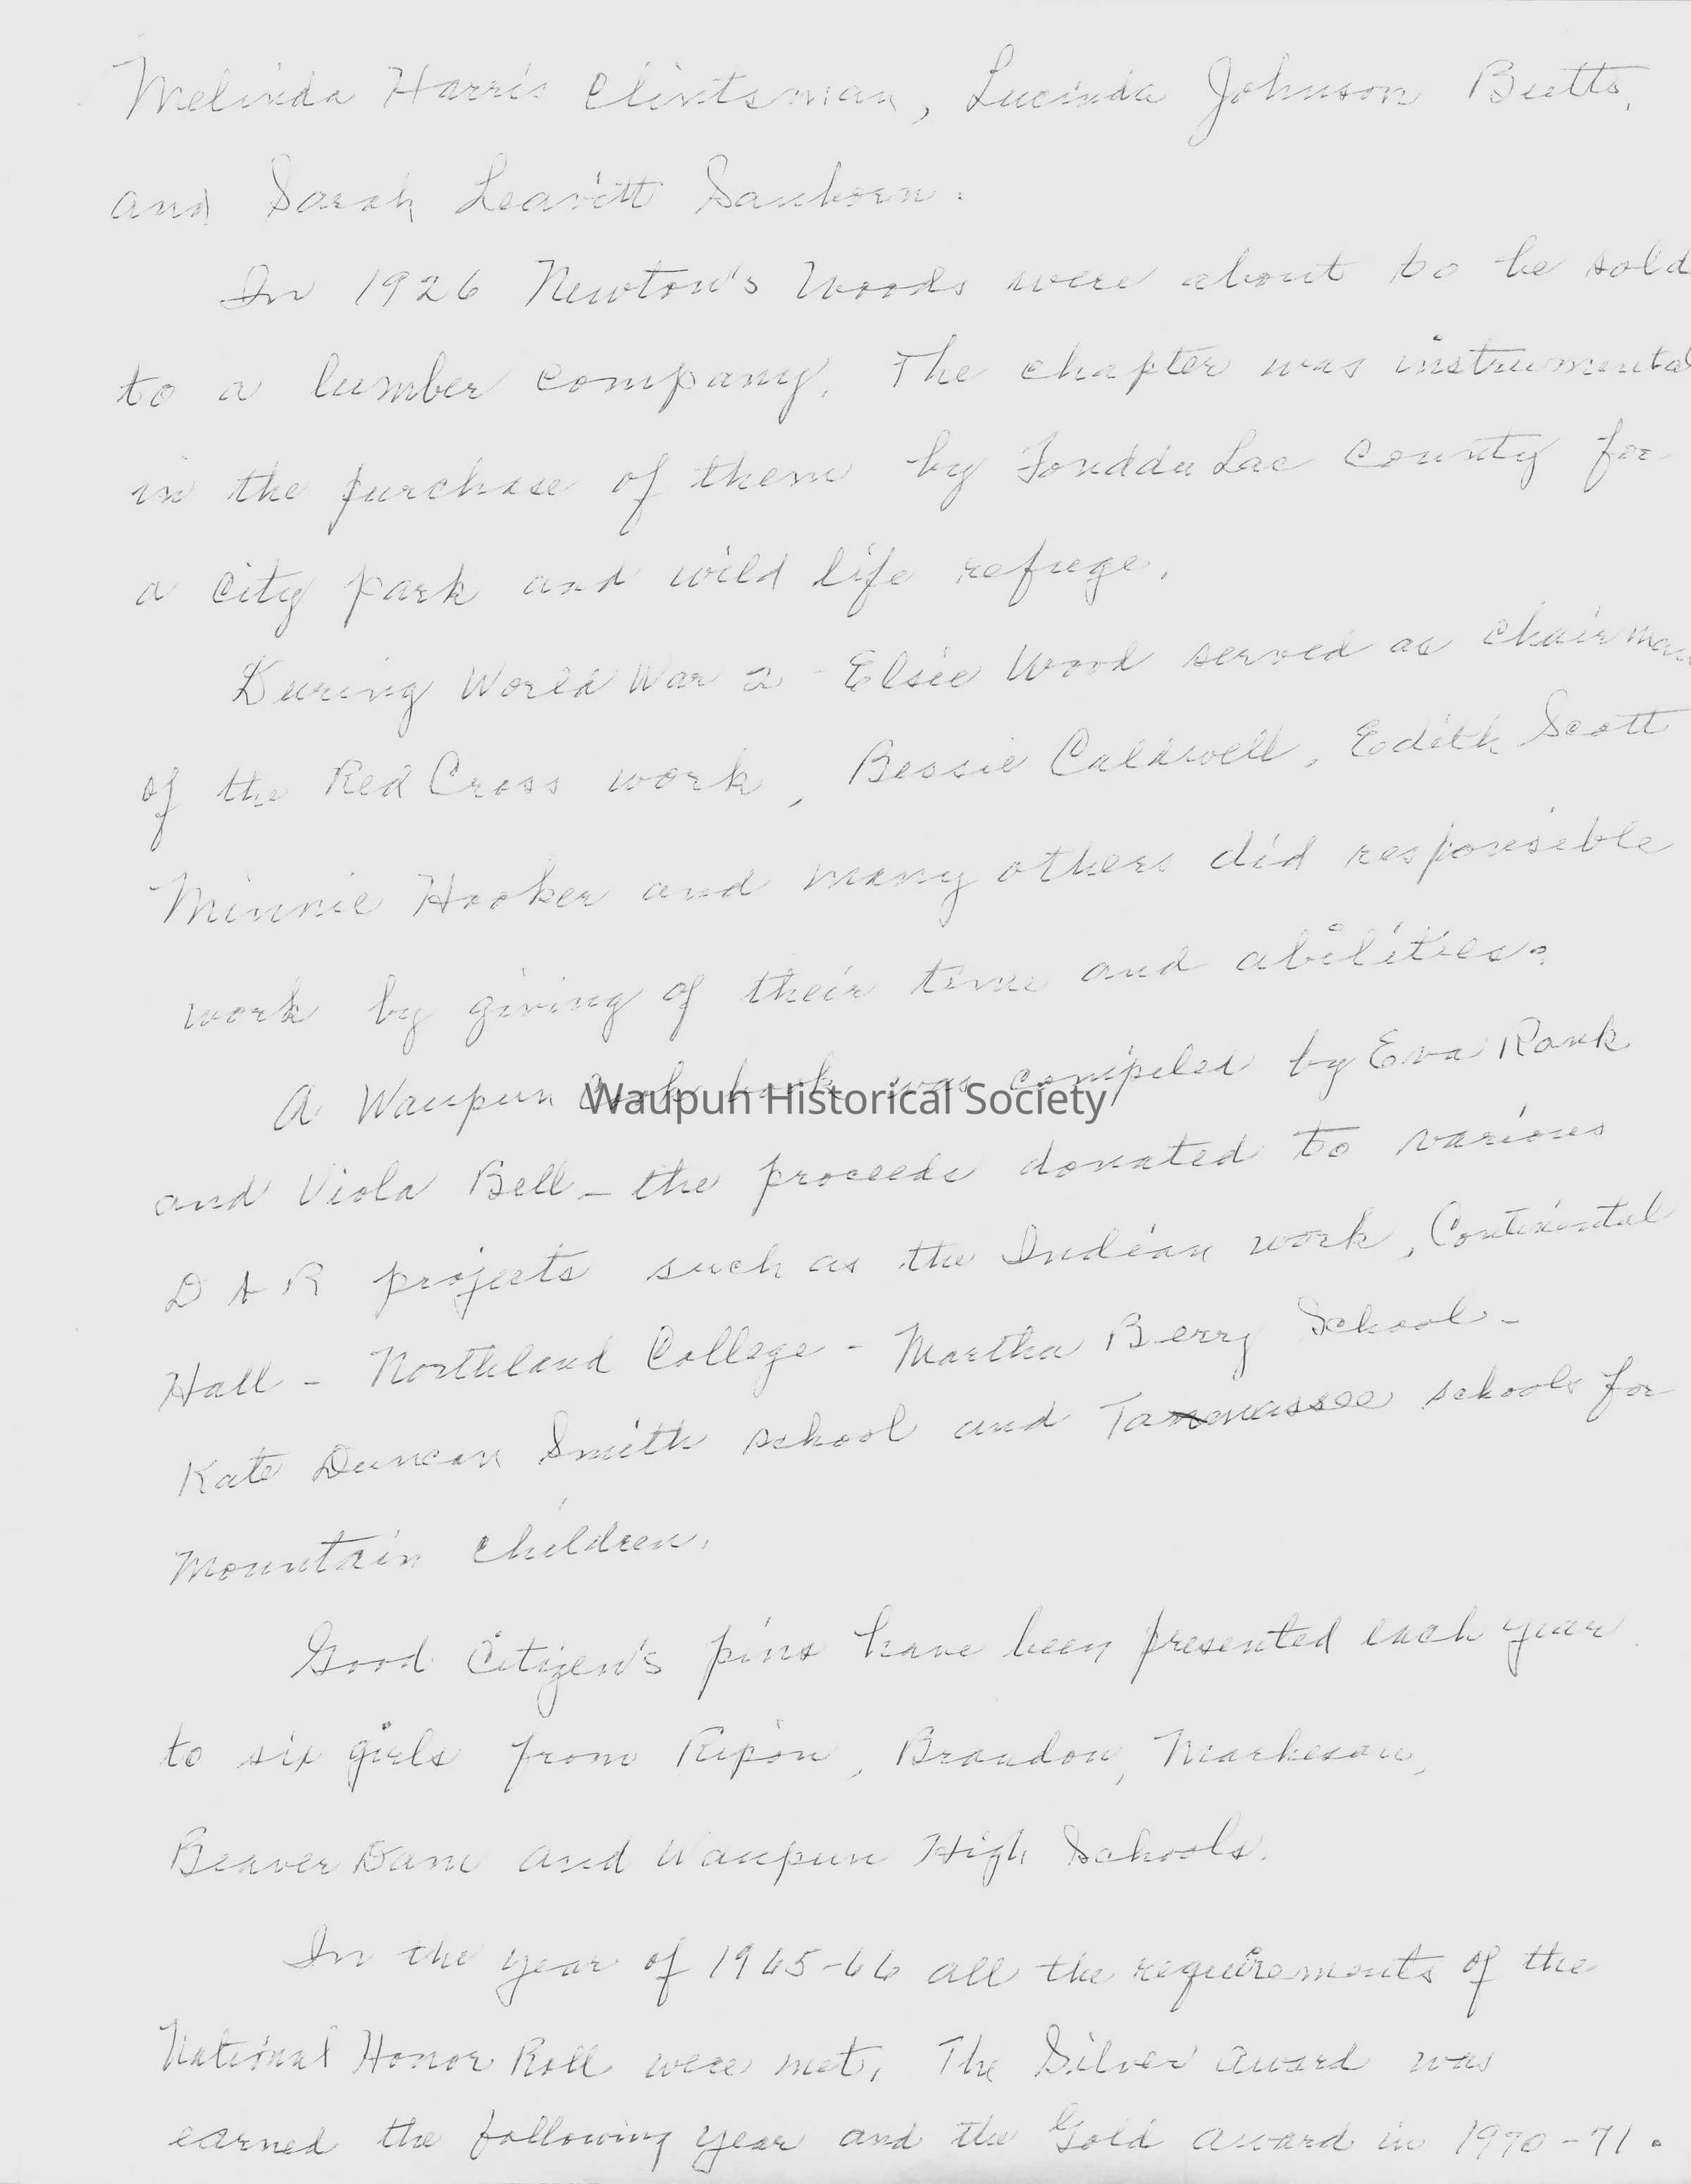 Melinda Harris Clintsman, Lucinda Johnson Butts,
and Sarah Leavitt Sanborn.
In 1926 Newton's Woods were about to be sold
to a lumber company. The chapter was instrumental
in the purchase of them by Fond du Lac County for
a city park and wild life refuge.
During World War 2 - Elsie Wood served as chairman
of the Red Cross work, Bessie Caldwell, Edith Scott
Minnie Hooker and many others did responsible
work by giving of their time and abilities.
A Waupun Cook book was compiled by Eva Rank
Waupun Historical Society
and Viola Bell - the proceeds donated to various
D A R projects such as the Indian work, Continental
Hall - Northland College - Martha Berry School -
Kate Duncan Smith school and Tamassee schools for
Mountain children.
Good Citizen's pins have been presented each year
to six girls from Ripon, Brandon, Markesan,
Beaver Dam and Waupun High Schools.
In the year of 1965-66 all the requirements of the
National Honor Roll were met. The Silver award was
earned the following year and the Gold award in 1970-71.